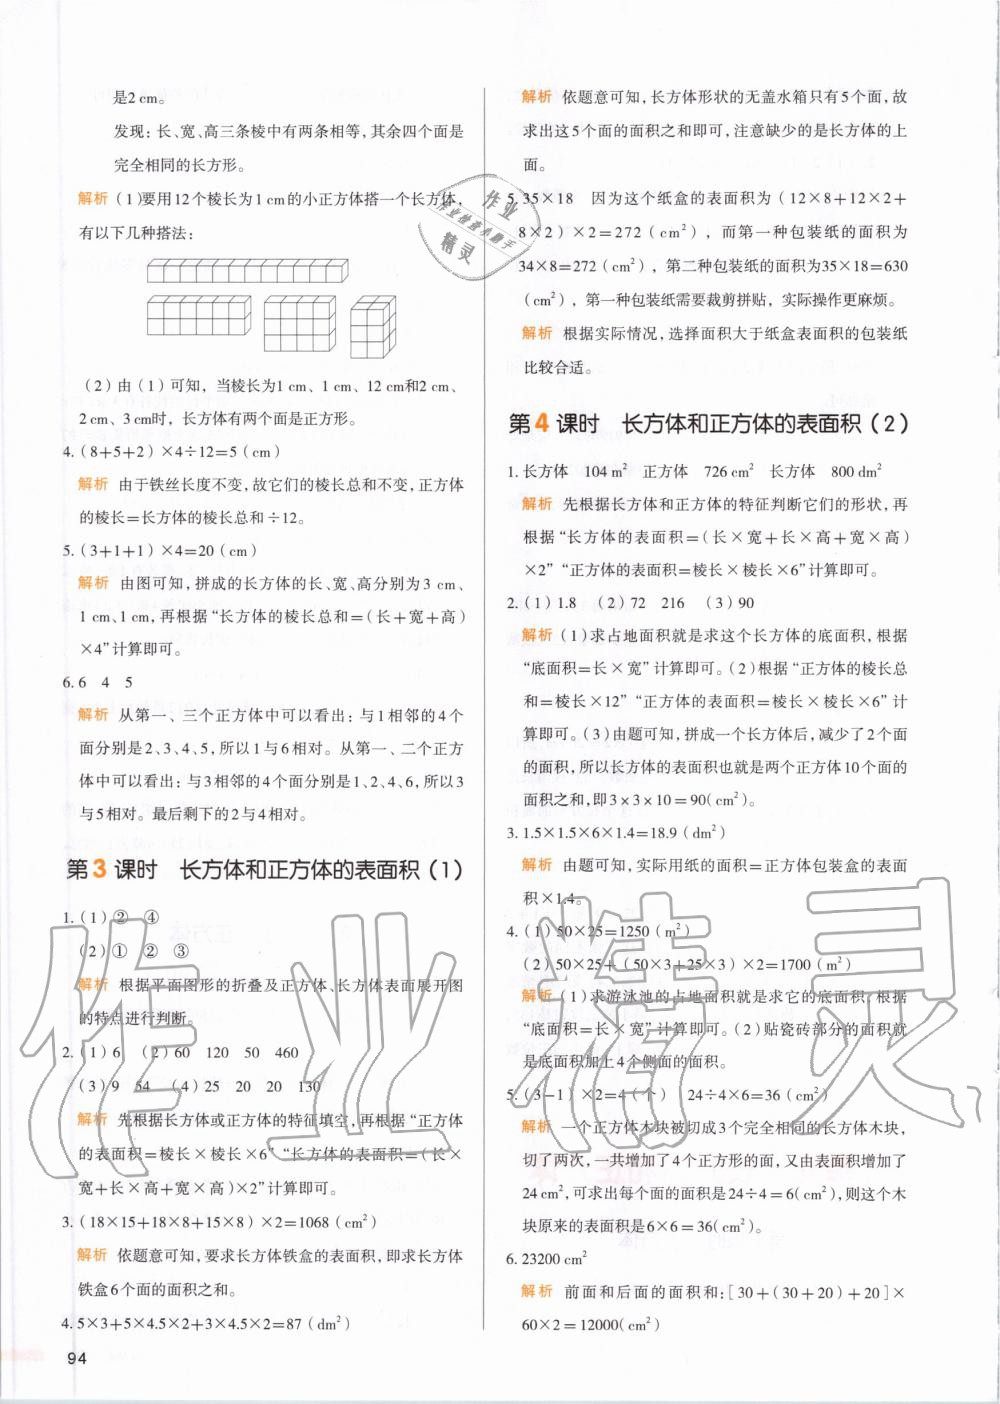 是2 cm。
发现：长、宽、高三条棱中有两条相等，其余四个面是
完全相同的长方形。
解析 (1)要用12个棱长为1 cm的小正方体搭一个长方体，
有以下几种搭法：
(2) 由(1)可知，当棱长为1 cm、1 cm、12 cm和2 cm、
2 cm、3 cm时，长方体有两个面是正方形。
4. (8+5+2)×4÷12=5(cm)
解析 由于铁丝长度不变，故它们的棱长总和不变，正方体
的棱长=长方体的棱长总和÷12。
5. (3+1+1)×4=20(cm)
解析 由图可知，拼成的长方体的长、宽、高分别为3 cm、
1 cm、1 cm，再根据“长方体的棱长总和=(长+宽+高)
×4”计算即可。
6. 6 4 5
解析 从第一、三个正方体中可以看出：与1相邻的4个
面分别是2、3、4、5，所以1与6相对。从第一、二个正方
体中可以看出：与3相邻的4个面分别是1、2、4、6，所以3
与5相对。最后剩下的2与4相对。
第3课时 长方体和正方体的表面积(1)
1. (1)② ④
(2)① ② ③
解析 根据平面图形的折叠及正方体、长方体表面展开图
的特点进行判断。
2. (1)6 (2)60 120 50 460
(3)9 54 (4)25 20 20 130
解析 先根据长方体或正方体的特征填空，再根据“正方体
的表面积=棱长×棱长×6”“长方体的表面积=(长×
宽+长×高+宽×高)×2”计算即可。
3. (18×15+18×8+15×8)×2=1068(cm²)
解析 依题意可知，要求长方体铁盒的表面积，即求长方体
铁盒6个面的面积之和。
4. 5×3+5×4.5×2+3×4.5×2=87(dm²)
94
解析 依题意可知，长方体形状的无盖水箱只有5个面，故
求出这5个面的面积之和即可，注意缺少的是长方体的上
面。
5. 35×18 因为这个纸盒的表面积为(12×8+12×2+
8×2)×2=272(cm²)，而第一种包装纸的面积为
34×8=272(cm²)，第二种包装纸的面积为35×18=630
(cm²)，第一种包装纸需要裁剪拼贴，实际操作更麻烦。
解析 根据实际情况，选择面积大于纸盒表面积的包装纸
比较合适。
第4课时 长方体和正方体的表面积(2)
1. 长方体 104 m² 正方体 726 cm² 长方体 800 dm²
解析 先根据长方体和正方体的特征判断它们的形状，再
根据“长方体的表面积=(长×宽+长×高+宽×高)
×2”“正方体的表面积=棱长×棱长×6”计算即可。
2. (1)1.8 (2)72 216 (3)90
解析 (1)求占地面积就是求这个长方体的底面积，根据
“底面积=长×宽”计算即可。(2)根据“正方体的棱长总
和=棱长×12”“正方体的表面积=棱长×棱长×6”计
算即可。(3)由题可知，拼成一个长方体后，减少了2个面
的面积，所以长方体的表面积也就是两个正方体10个面的
面积之和，即3×3×10=90(cm²)。
3. 1.5×1.5×6×1.4=18.9(dm²)
解析 由题可知，实际用纸的面积=正方体包装盒的表面
积×1.4。
4. (1)50×25=1250(m²)
(2)50×25+(50×3+25×3)×2=1700(m²)
解析 (1)求游泳池的占地面积就是求它的底面积，根据
“底面积=长×宽”计算即可。(2)贴瓷砖部分的面积就
是底面积加上4个侧面的面积。
5. (3-1)×2=4(个) 24÷4×6=36(cm²)
解析 一个正方体木块被切成3个完全相同的长方体木块，
切了两次，一共增加了4个正方形的面，又由表面积增加了
24 cm²，可求出每个面的面积是24÷4=6(cm²)，则这个木
块原来的表面积是6×6=36(cm²)。
6. 23200 cm²
解析 前面和后面的面积和：[30+(30+20)+20]×
60×2=12000(cm²)
作业
作业检查小助手
精灵
作业精灵